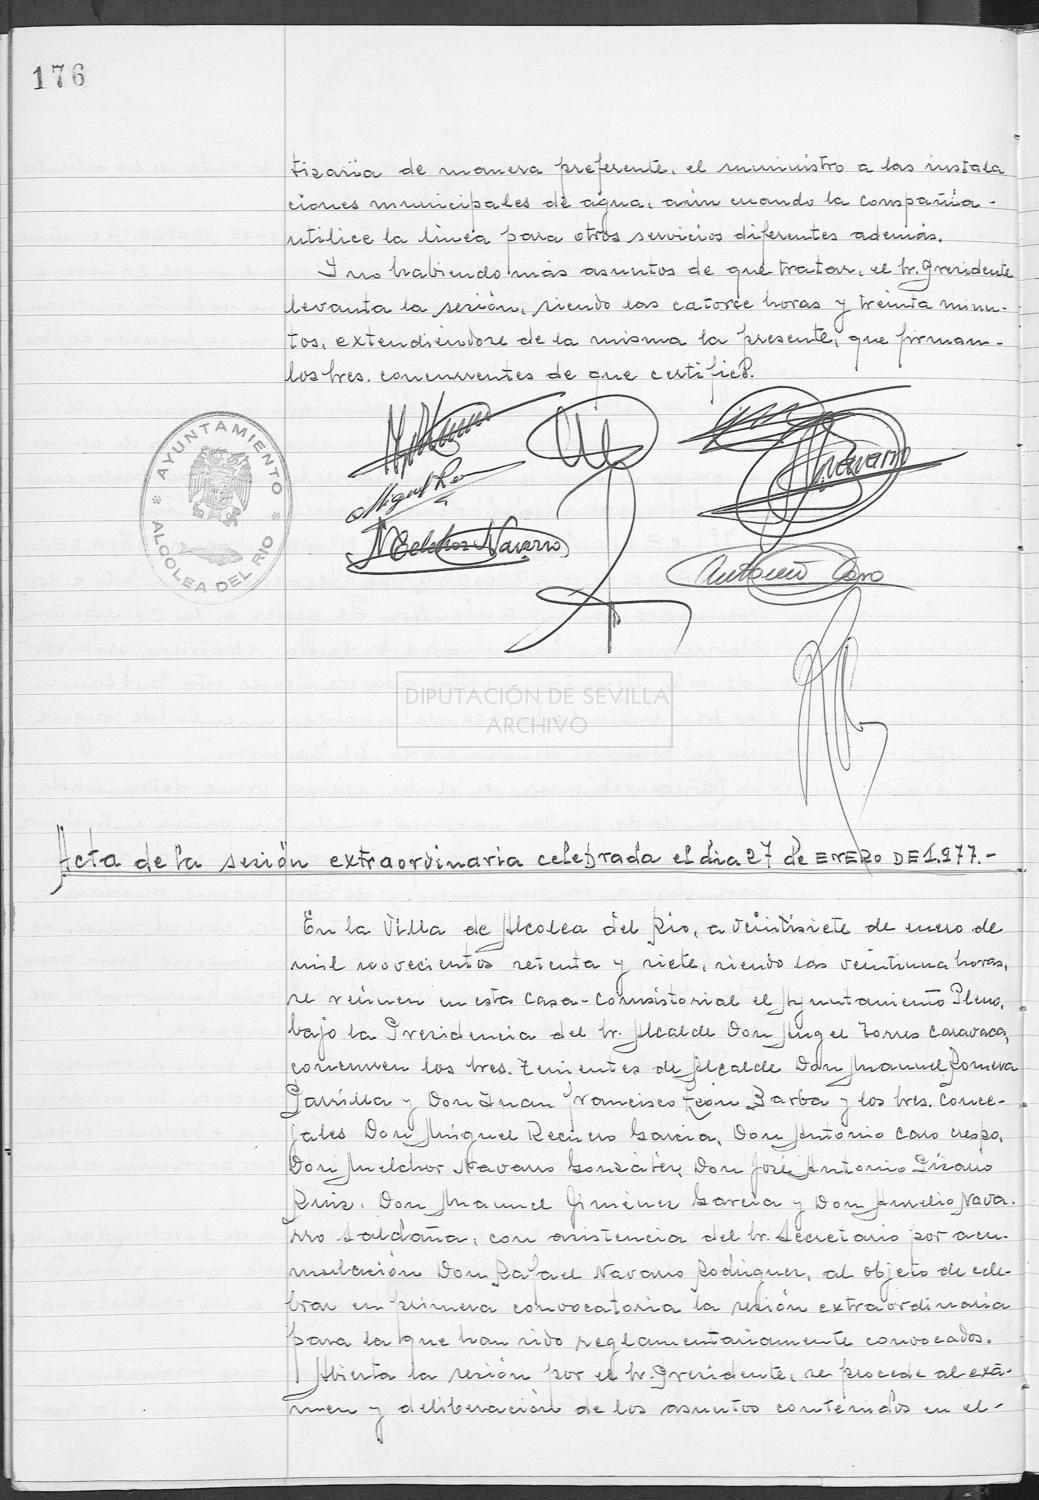 176
tizaría de manera preferente, el suministro a las instala
ciones municipales de agua, aún cuando la compañía -
utilice la línea para otros servicios diferentes además.
Y no habiendo más asuntos de que tratar, el Sr. Presidente
levanta la sesión, siendo las catorce horas y treinta minu-
tos, extendiéndose de la misma la presente, que firman -
los Sres. concurrentes de que certifico.
AYUNTAMIENTO
ALCOLEA DEL RIO
Miguel Re
Navarro
Melchor Navarro
Antonio Caro
DIPUTACIÓN DE SEVILLA
ARCHIVO
Acta de la sesión extraordinaria celebrada el dia 27 de ENERO DE 1.977.-
En la Villa de Alcolea del Río, a veintisiete de enero de
mil novecientos setenta y siete, siendo las veintiuna horas,
se reúnen en esta Casa-Consistorial el Ayuntamiento Pleno,
bajo la Presidencia del Sr. Alcalde Don Angel Torres Caravaca,
concurren los Sres. Tenientes de Alcalde Don Manuel Romera
Parrilla y Don Juan Francisco León Barba y los Sres. Conce-
jales Don Miguel Recuero Garcia, Don Antonio Caro Crespo,
Don Melchor Navarro González, Don José Antonio Pizarro
Ruiz, Don Manuel Jiménez Garcia y Don Aurelio Nava-
rro Saldaña, con asistencia del Sr. Secretario por acu-
mulación Don Rafael Navarro Rodriguez, al objeto de cele-
brar en primera convocatoria la sesión extraordinaria
para la que han sido reglamentariamente convocados.
Abierta la sesión por el Sr. Presidente, se procede al exá-
men y deliberación de los asuntos contenidos en el -